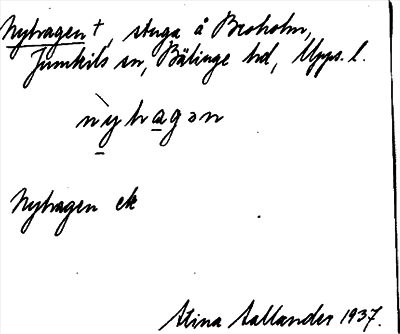 Nyhagen †, stuga å Broholm,
Jumkils sn, Bälinge hd, Upps. l.
nỳhagən
Nyhagen ek
Stina Aallander 1937.